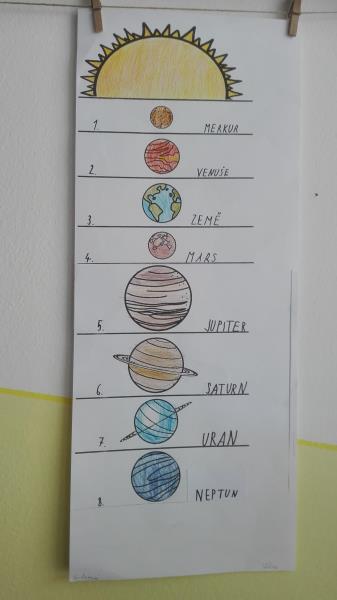 1. MERKUR
2. VENUŠE
3. ZEMĚ
4. MARS
5. JUPITER
6. SATURN
7. URAN
8. NEPTUN